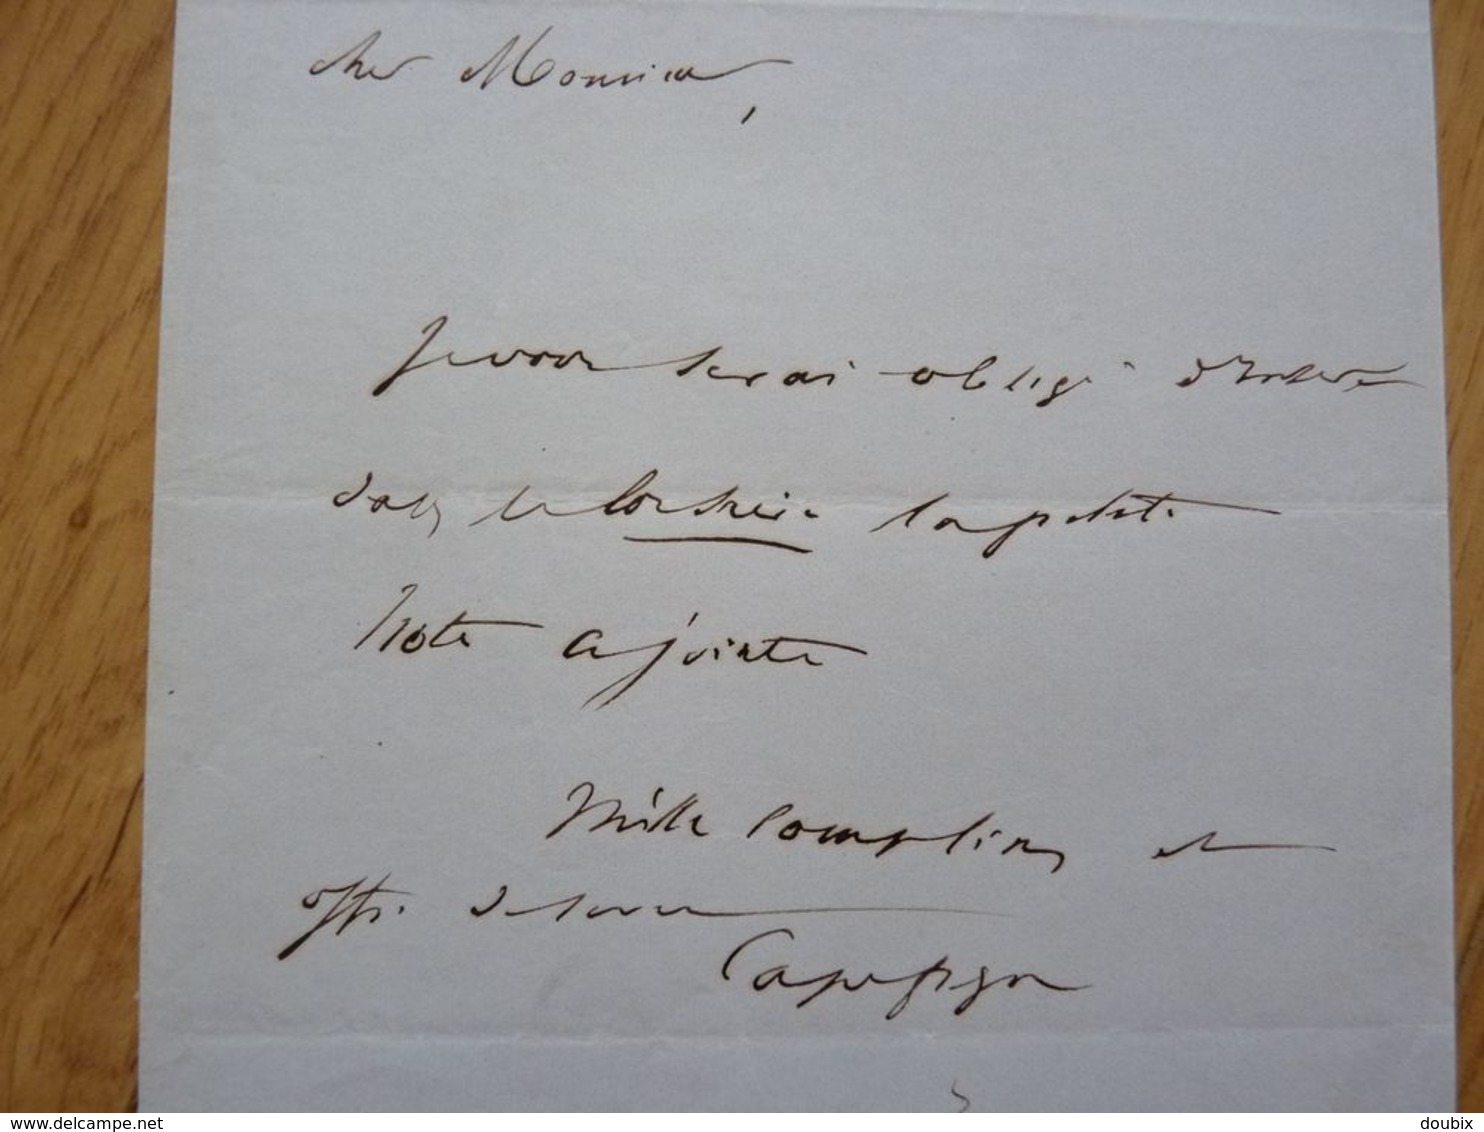 cher Monsieur,
Je vous serai obligé d'insérer
dans le Corsaire la petite
Note ajointe
Mille complimens et
offre de service
Capefigue
www.delcampe.net
doubix